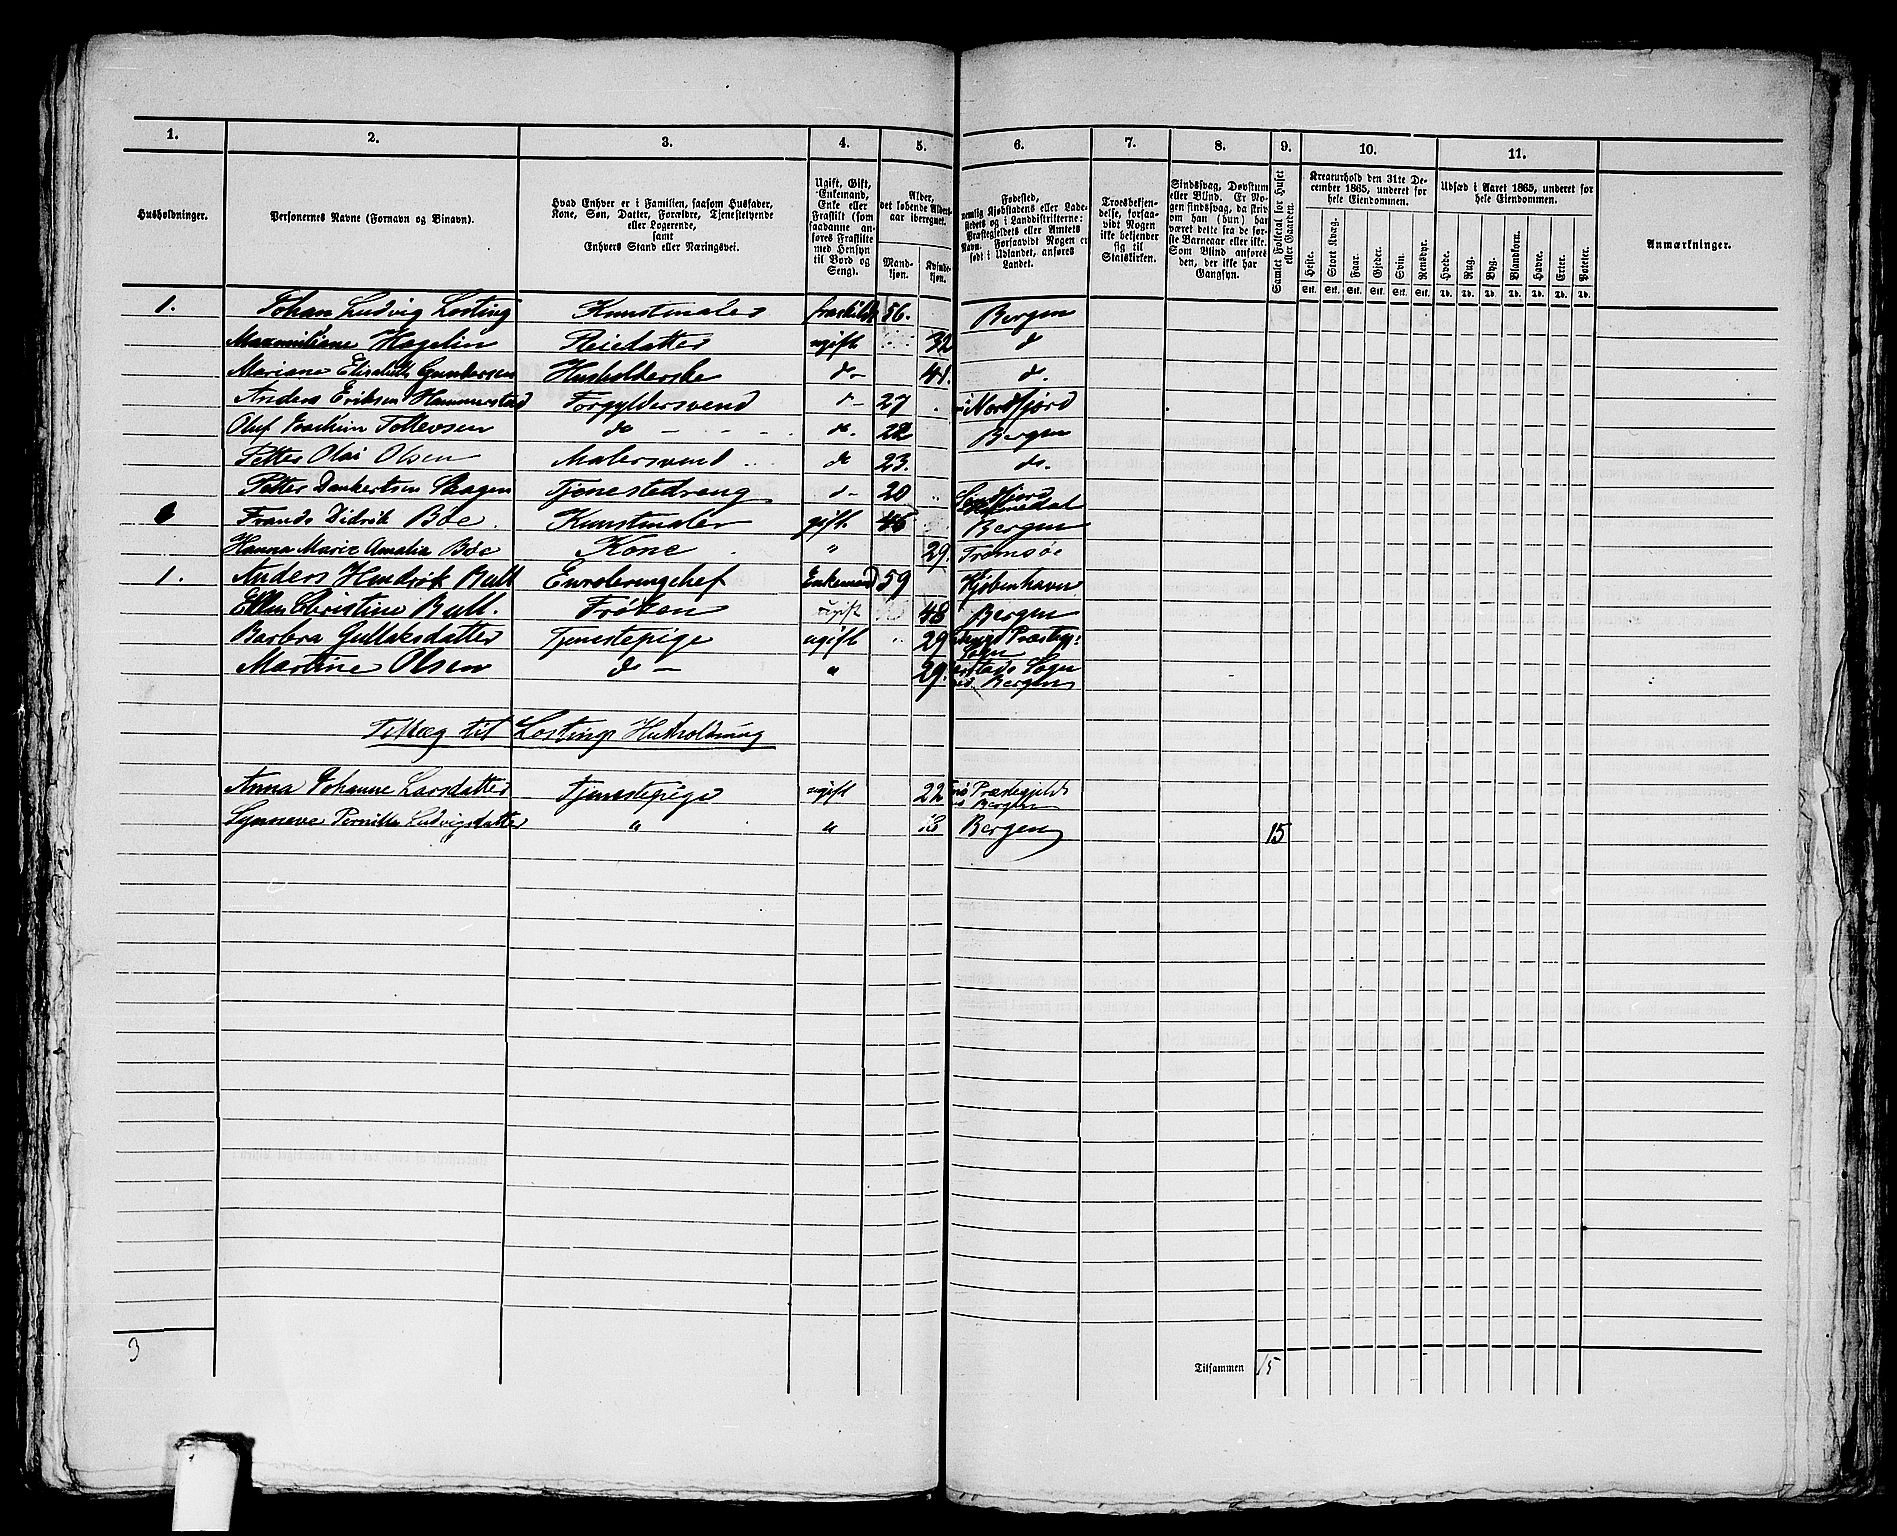 1. 2. 3. 4. 5. 6. 7. 8. 9. 10. 11.
Husholdninger.
Personernes Navne (Fornavn og Tilnavn).
Hvad Enhver er i Familien, saasom Husfader,
Kone, Søn, Datter, Forældre, Tjenestetyende
eller Logerende,
samt
Enhvers Stand eller Næringsvei.
Ugift, Gift,
Enkemand,
Enke eller
Fraskilt (som
saadanne an-
føres Fraskilte
med Hensyn
til Bord og
Seng).
Alder,
det løbende Alders-
aar iberegnet.
Mand-
kjøn.
Kvinde-
kjøn.
Fødested,
nemlig Kjøbstadens eller Lade-
stedets og i Landdistrikterne:
Præstegjeldets eller Amtets
Navn. Forsaavidt Nogen er
født i Udlandet, anføres
Landet.
Troesbekjen-
delse, forsaa-
vidt Nogen
ikke bekjender
sig til
Statskirken.
Sindssvag, Døvstum
eller Blind. Er No-
gen sindssvag, da skri-
ves om han (hun) har
været dette fra de før-
ste Barneaar eller ikke.
Som Blind anføres
den, der ikke har
Gangsyn.
Samlet Folketal for Huset
eller Gaarden.
Kreaturhold den 31te De-
cember 1865, underet for
hele Eiendommen.
Heste. Stort Kvæg. Faar. Gjeder. Svin. Rensdyr.
Stk. Stk. Stk. Stk. Stk. Stk.
Udsæd i Aaret 1865, underet for
hele Eiendommen.
Hvede. Rug. Byg. Blandkorn. Havre. Erter. Poteter.
Td. Td. Td. Td. Td. Td. Td.
Anmærkninger.
1. Johan Ludvig Losting Kunstmaler fraskildt 56. Bergen
Maxmiliane Hagelin Pleiedatter ugift 32 d
Mariane Elisabeth Gundersen Husholderske d- 41. d.
Anders Eriksen Hammerstad Forgyldersvend d- 27 Nordfjord
Oluf Joachim Tollevsen do - - - do. 22 Bergen
Petter Olai Olsen Malersvend do 23. do.
Petter Dankertsen Skagen Tjenestedreng d- 20 Søndfjord
Frands Didrik Bøe Kunstmaler gift 45 Bergen
Hanna Marie Amalia Bøe Kone " 29. Tromsøe
1. Anders Hendrik Bull Enrolleringschef Enkemand 59 Kjøbenhavn
Ellen Christine Bull. Frøken ugift 48 Bergen
Barbra Gullaksdatter Tjenestepige ugift 29 Præstegj:
Sogn
Martine Olsen do - " 29. Sogn
Bergen
Tillæg til Lostings Husholdning
Anna Johanne Larsdatter Tjenestepige ugift 22 Præstegjeld
Bergen
Synneve Pernille Ludvigsdatter " " 13 Bergen 15
3
Tilsammen 15